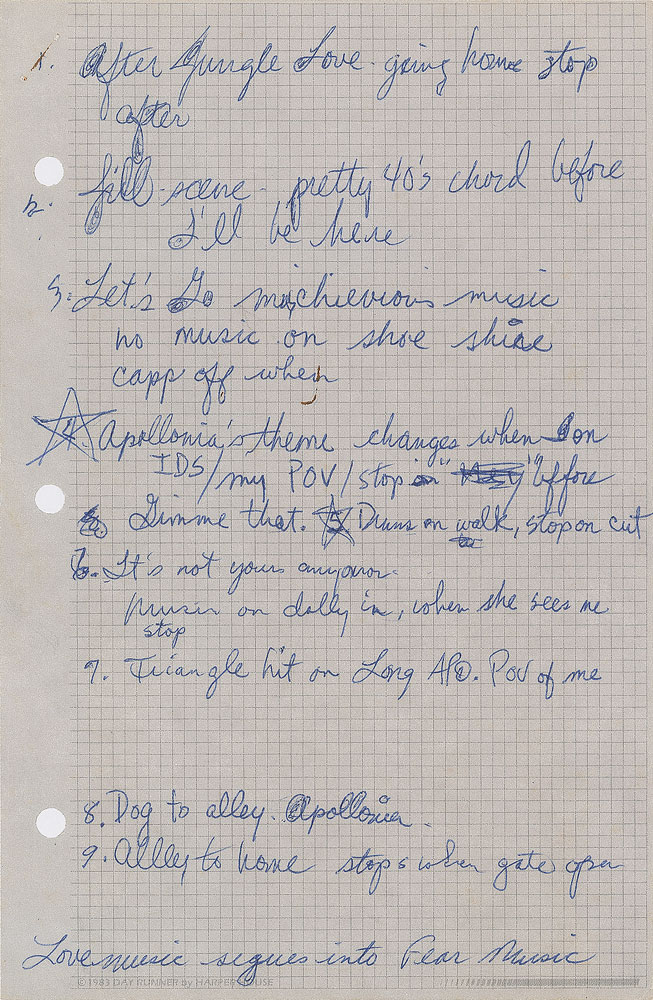 1. After Jungle Love - going home stop
after
2. fill-scene - pretty 40's chord before
I'll be here
3. Let's Go mischievious music
no music on shoe shine
capp off when
4. Apollonia's theme changes when I on
IDS/my POV/stop on " " before
Gimme that. 5 Drums on walk, stop on cut
6. It's not yours anymor
music on dolly in, when she sees me
stop
7. Triangle hit on Long APO. POV of me
8. Dog to alley. Apollonia.
9. Alley to home stops when gate open
Love music segues into Fear Music
© 1983 DAY RUNNER by HARPER HOUSE